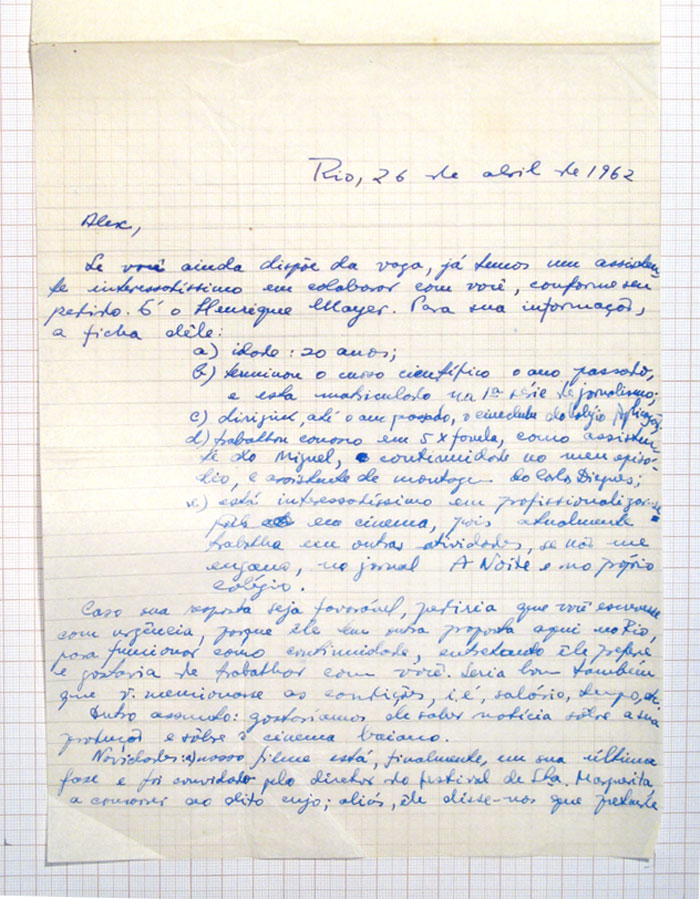 Rio, 26 de abril de 1962
Alex,
Se você ainda dispõe da vaga, já temos um assisten-
te interessatíssimo em colaborar com você, conforme seu
pedido. É o Henrique Mayer. Para sua informação,
a ficha dêle:
a) idade: 20 anos;
b) terminou o curso científico o ano passado,
e esta matriculado na 1ª série de jornalismo;
c) dirigiu, até o ano passado, o cineclube do Colégio Aplicação;
d) trabalhou conosco em 5 x favela, como assisten-
te do Miguel, continuidade no meu episó-
dio, e assistente de montagem do Calo Diegues;
e) está interessatíssimo em profissionalizar-se
em cinema, pois atualmente
trabalha em outras atividades, se não me
engano, no jornal A Noite e no próprio
colégio.
Caso sua resposta seja favorável, pediria que você escrevesse
com urgência, porque êle tem outra proposta aqui no Rio,
para funcionar como continuidade, entretanto êle prefere
e gostaria de trabalhar com você. Seria bom também
que v. mencionasse as condições, i.é, salário, tempo, etc.
Outro assunto: gostaríamos de saber notícia sôbre a sua
produção e sôbre o cinema baiano.
Novidades: a) nosso filme está, finalmente, em sua última
fase e foi convidado pelo diretor do festival de Sta. Margarita
a concorrer ao dito cujo; aliás, êle disse-nos que